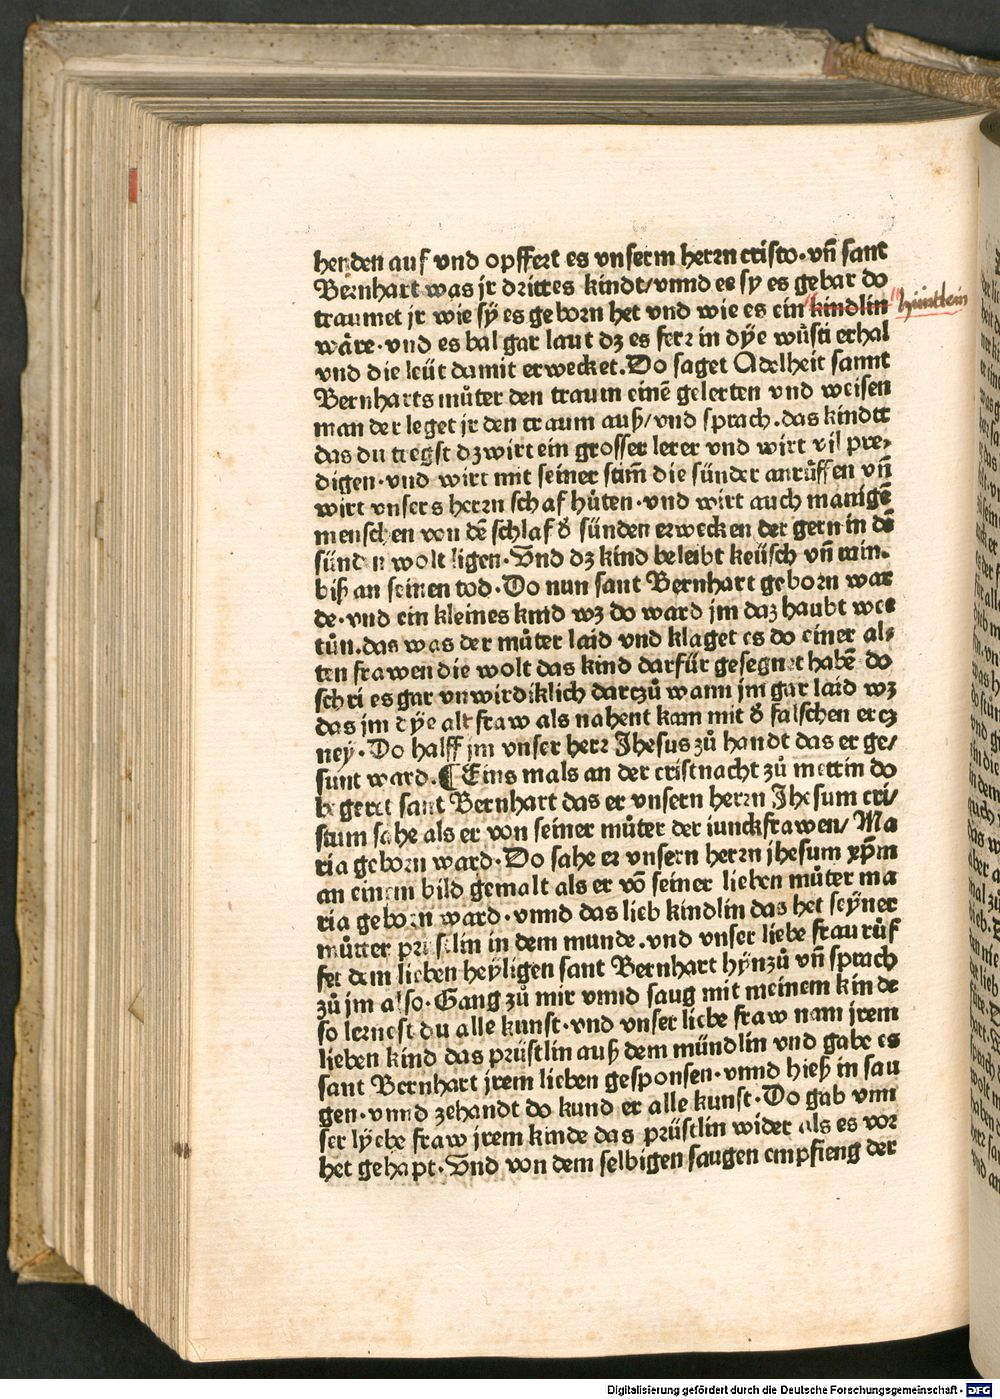 henden auf vnd opffert es vnserm herrn cristo·vn̄ sant
Bernhart was jr drittes kindt/vnnd ee sy es gebar do
traumet jr wie sÿ es geborn het vnd wie es ein kindlin hüntlein
wåre·vnd es bal gar laut dz es ferr in dÿe wůsti erhal
vnd die leüt damit erwecket.Do saget Adelheit sannt
Bernharts můter den traum einē gelerten vnd weisen
man der leget jr den traum auß/vnd sprach.das kindtt
das du tregst dz wirt ein grosser lerer vnd wirt vil pre⸗
digen·vnd wirt mit seiner stim̄ die sünder anrůffen vn̄
wirt vnsers herrn schaf hůten·vnd wirt auch manigē
menschen von dē schlaf d̄ sünden erwecken der gern in dē
sünden wolt ligen·Vnd dz kind beleibt keüsch vn̄ rain.
biß an seinen tod·Do nun sant Bernhart geborn war
de·vnd ein kleines kind wz do ward jm daz haubt wee
tůn.das was der můter laid vnd klaget es do einer al⸗
ten frawen die wolt das kind darfür gesegnet habē do
schri es gar vnwirdiklich dartzů wann jm gar laid wz
das jm dÿe alt fraw als nahent kam mit d̄ falschen ercz
ney·Do halff jm vnser herr Jhesus zů handt das er ge/
sunt ward.¶Eins mals an der cristnacht zů mettin do
begeret sant Bernhart das er vnsern herrn Jhesum cri/
stum sahe als er von seiner můter der iunckfrawen/Ma
ria geborn ward·Do sahe er vnsern herrn jhesum xp̄m
an einem bild gemalt als er vō seiner lieben můter ma
ria geborn ward·vnnd das lieb kindlin das het seÿner
můtter prüstlin in dem munde.vnd vnser liebe frau růf
fet dem lieben heÿligen sant Bernhart hÿnzů vn̄ sprach
zů jm also·Gang zů mir vnnd saug mit meinem kinde
so lernest du alle kunst·vnd vnser liebe fraw nam jrem
lieben kind das prüstlin auß dem mündlin vnd gabe es
sant Bernhart jrem lieben gesponsen·vnnd hieß in sau
gen·vnnd zehandt do kund er alle kunst·Do gab vnn
ser lÿebe fraw jrem kinde das prüstlin wider als es vor
het gehapt·Vnd von dem selbigen saugen empfieng der
Digitalisierung gefördert durch die Deutsche Forschungsgemeinschaft - DFG